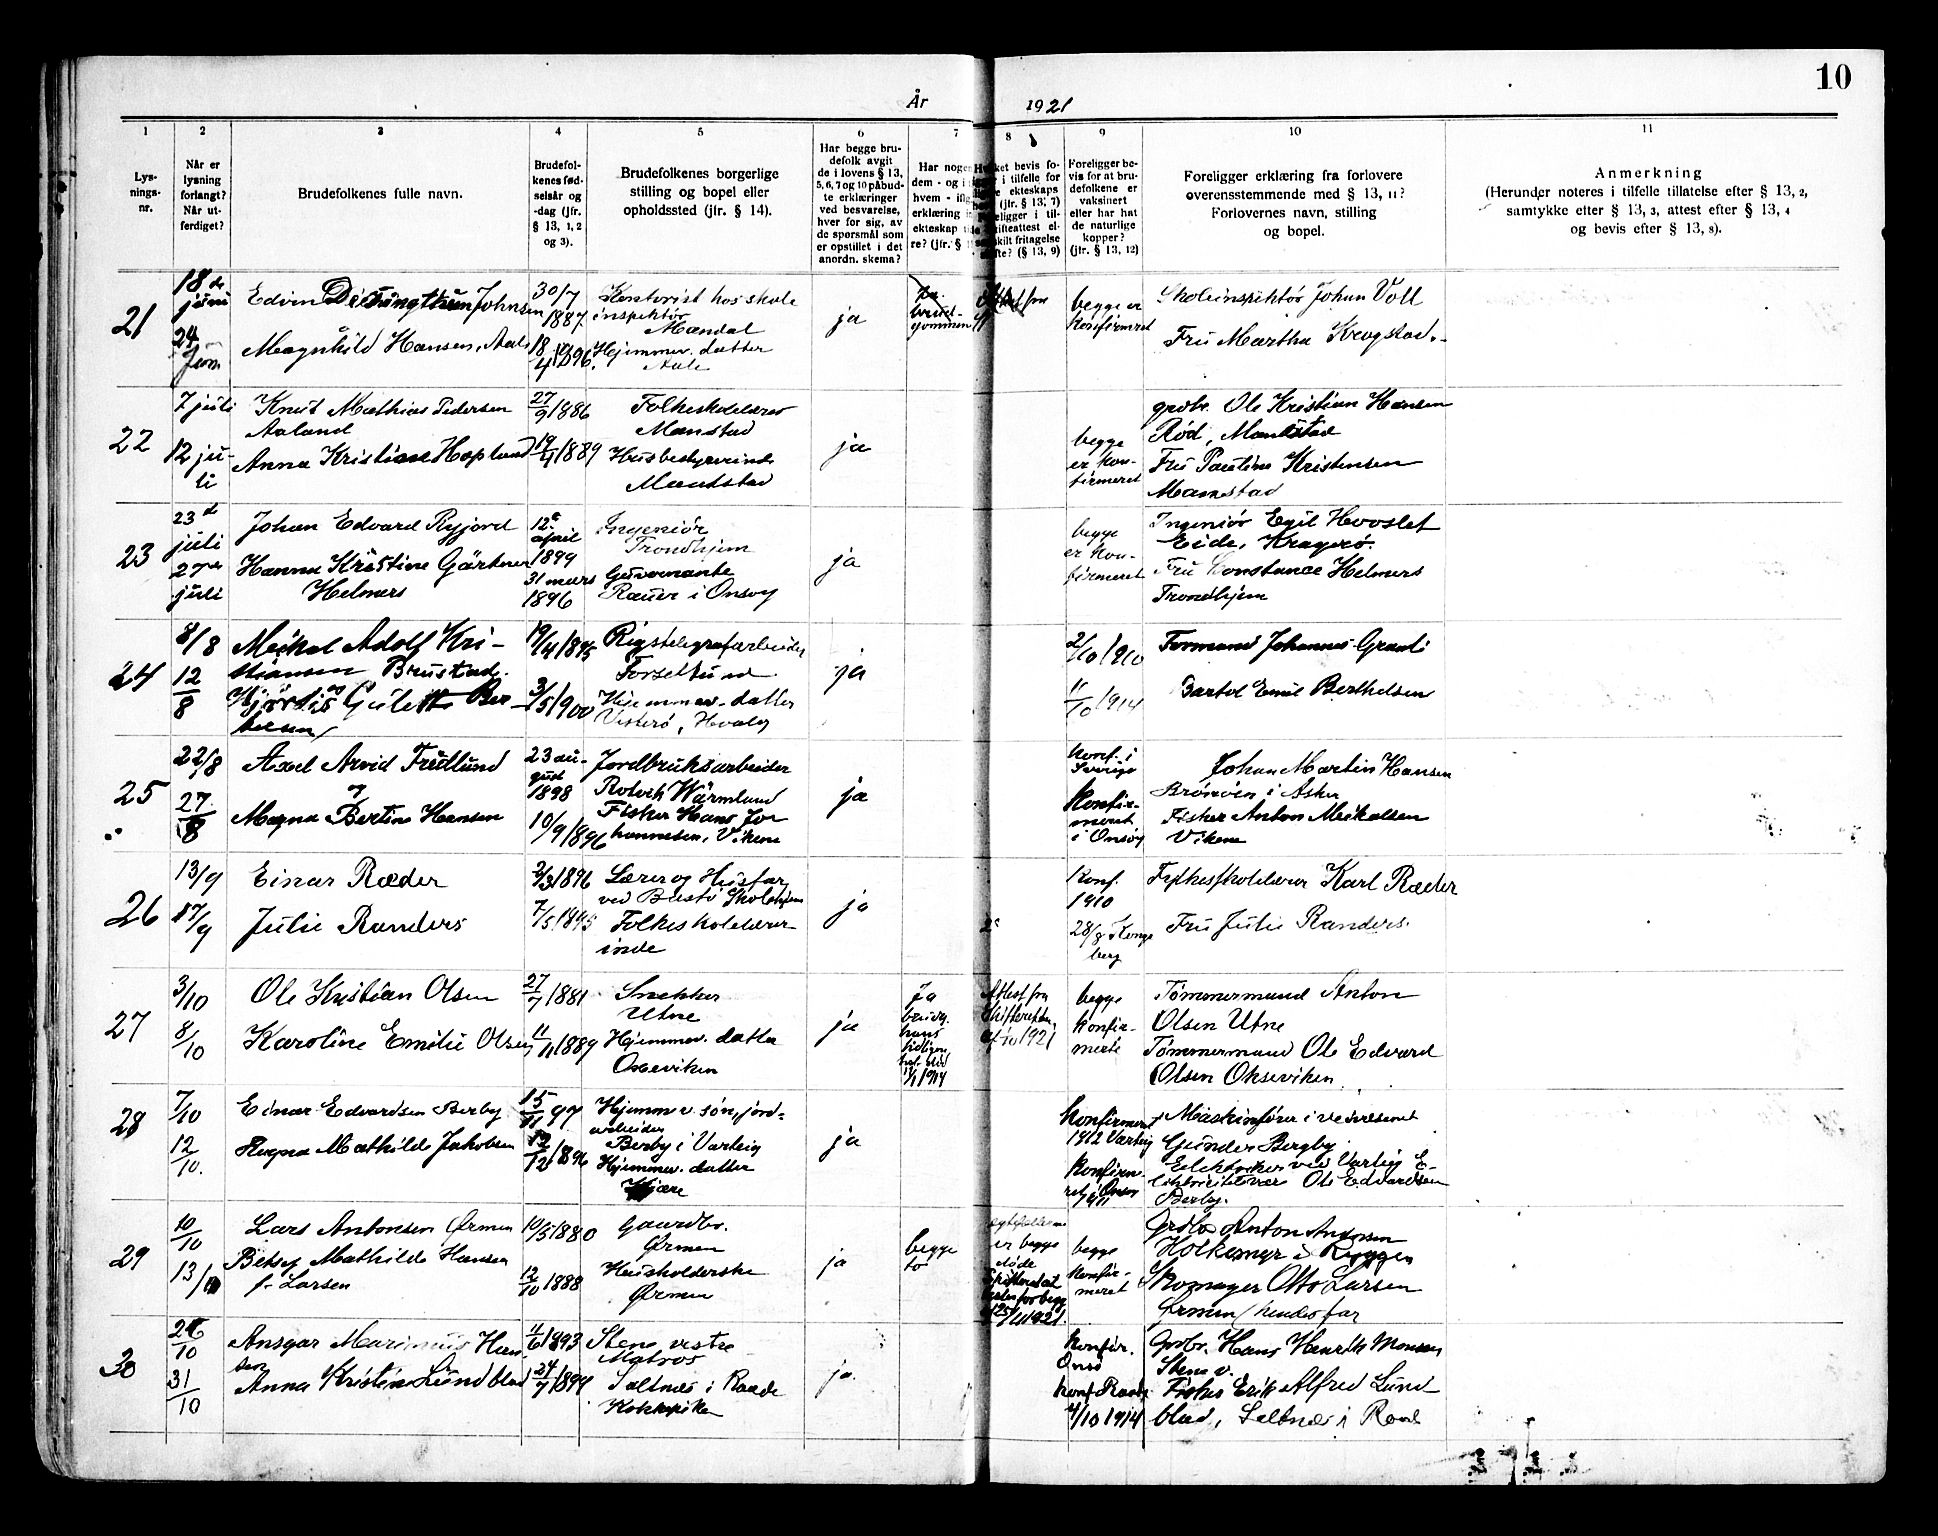 10
År 1921
1
2
3
4
5
6
7
8
9
10
11
Lys-
nings-
nr.
Når er
lysning
forlangt?
Når ut-
ferdiget?
Brudefolkenes fulle navn.
Brudefol-
kenes fød-
selsår og
-dag (jfr.
§ 13, 1, 2
og 3).
Brudefolkenes borgerlige
stilling og bopel eller
opholdssted (jfr. § 14).
Har begge bru-
defolk avgit
de i lovens § 13,
5, 6, 7 og 10 påbud-
te erklæringer
ved besvarelse,
hver for sig, av
de spørsmål som
er opstillet i det
anordn. skema?
Har nogen
dem - og i
hvem -
erklæring
ekteskap
re? (jfr. §
bevis fo-
i tilfelle for
ekteskaps
(jfr. § 13, 7)
i til-
skifteattest el-
fritagelse
(§ 13, 9)
Foreligger be-
vis for at bru-
defolkene er
vaksinert
eller har hat
de naturlige
kopper?
(jfr. § 13, 12)
Foreligger erklæring fra forlovere
overensstemmende med § 13, 11?
Forlovernes navn, stilling
og bopel.
Anmerkning
(Herunder noteres i tilfelle tillatelse efter § 13, 2,
samtykke efter § 13, 3, attest efter § 13, 4
og bevis efter § 13, 8).
21
18de
juni
24
Juni
Edvin Johnsen
Magnhild Hansen, Aale
30/7
1887
18/4 1896
Kontorist hos skole
inspektør
Mandal
Hjemmev. datter
Aale
ja
brud-
gommen
begge er
konfirmeret
Skoleinspektør Johan Voll
Fru Martha Krogstad
22
7 juli
12 ju-
li
Knut Mathias Pedersen
Aaland
Anna Kristiane Hoplund
27/9 1886
19/4 1889
Folkeskolelærer
Manstad
Husbestyrerinde
Manstad
ja
begge
er kon-
firmeret
grdbr. Ole Kristian Hansen
Rød, Manstad
Fru Pauline Kristensen
Manstad
23
23d
juli
27de
juli
Johan Edvard Ryjord
Hanna Kristine Gärtner
Helmers
12te
april
1899
31 mars
1896
Ingeniør
Trondhjem
Guvernante
Rauer i Onsøy
ja
begge
er kon-
firmeret
Ingeniør Egil Hvoslef
Eide, Kragerø.
Fru Constance Helmers
Trondhjem
24
8/8
12/8
Meikal Adolf Kri-
stiansen Brustad
Hjørdis Ber-
telsen
19/4 1895
3/5 1900
Rigstelegrafarbeider
Hjemmev. datter
Vesterø, Hvaler
ja
2/10 1910
11/10 1914
Formand Johannes
Bartol Emil Berthelsen
25
22/8
27/8
Axel Arvid Fredlund
og
Magna Bertine Hansen
23 au-
gust
1898
10/9 1896
Jordbruksarbeider
Wärmland
Fisker Hans Jo-
hannesen, Viken
ja
Konf. i
Sverige
konfir-
meret
i Onsøy
Johan Martin Hansen
Brönöen i Asker
Fisker Anton Meikalsen
Viken
26
13/9
17/9
Einar Ræder
Julie Randers
2/3 1896
7/5 1895
Lærer og Husfar
ved Bastø Skolehjem
Folkeskolelærer-
inde
ja
Konf.
1910
28/8 Kongs
berg
Fylkesskolelærer Karl Ræder
Fru Julie Randers.
27
3/10
8/10
Ole Kristian Olsen
Karoline Emilie Olsen
27/7 1881
11/11 1889
Snekker
Utne
Hjemmev. datter
Oxeviken
ja
Ja
brudg.
hans
tidligere
død
1914
Attest fra
Skifteretten
1921
begge
konfir-
merte
Tømmermand Anton
Olsen Utne
Tømmermand Ole Edvard
Olsen Okseviken
28
7/10
12/10.
Einar Edvardsen Berby
Ragna Mathilde Jakobsen
15/11 97
12/12 1896
Hjemmev. søn, jord-
arbeider
Berby i Varteig
Hjemmev. datter
Kjære
ja
Konfirmeret
1912 Varteig
Konfirme-
ret i Onsø
1911
Maskinfører i
Gunder Bergby
Elektriker ved Varteig E-
lektricitetsverk Ole Edvardsen
Berby.
29
10/10
13/10
Lars Antonsen Ørmen
Betsy Mathilde Hansen
f. Larsen
10/5 1880
12/10 1888
Gaardbr.
Ørmen
Husholderske
Ørmen
ja
begge
to
er begge
døde
for begge
1921
begge
konfir-
meret
Grdbr. Anton Andersen
Holkemyr i Ryggen
Skomager Otto Larsen
Ørmen (hendes far
30
26/10
31/10
Ansgar Marinius Han-
sen
Anna Kristine Lundblad
11/6 1893
24/7 1899
Stene vestre
Matros
Saltnes i Raade
Kokkepike
ja.
Konfir.
Onsø
konf Raade
4/10 1914
Grdbr. Hans Henrik Monsen
Stene v.
Fisker Erik Alfred Lund
blad, Saltnæs i Raade